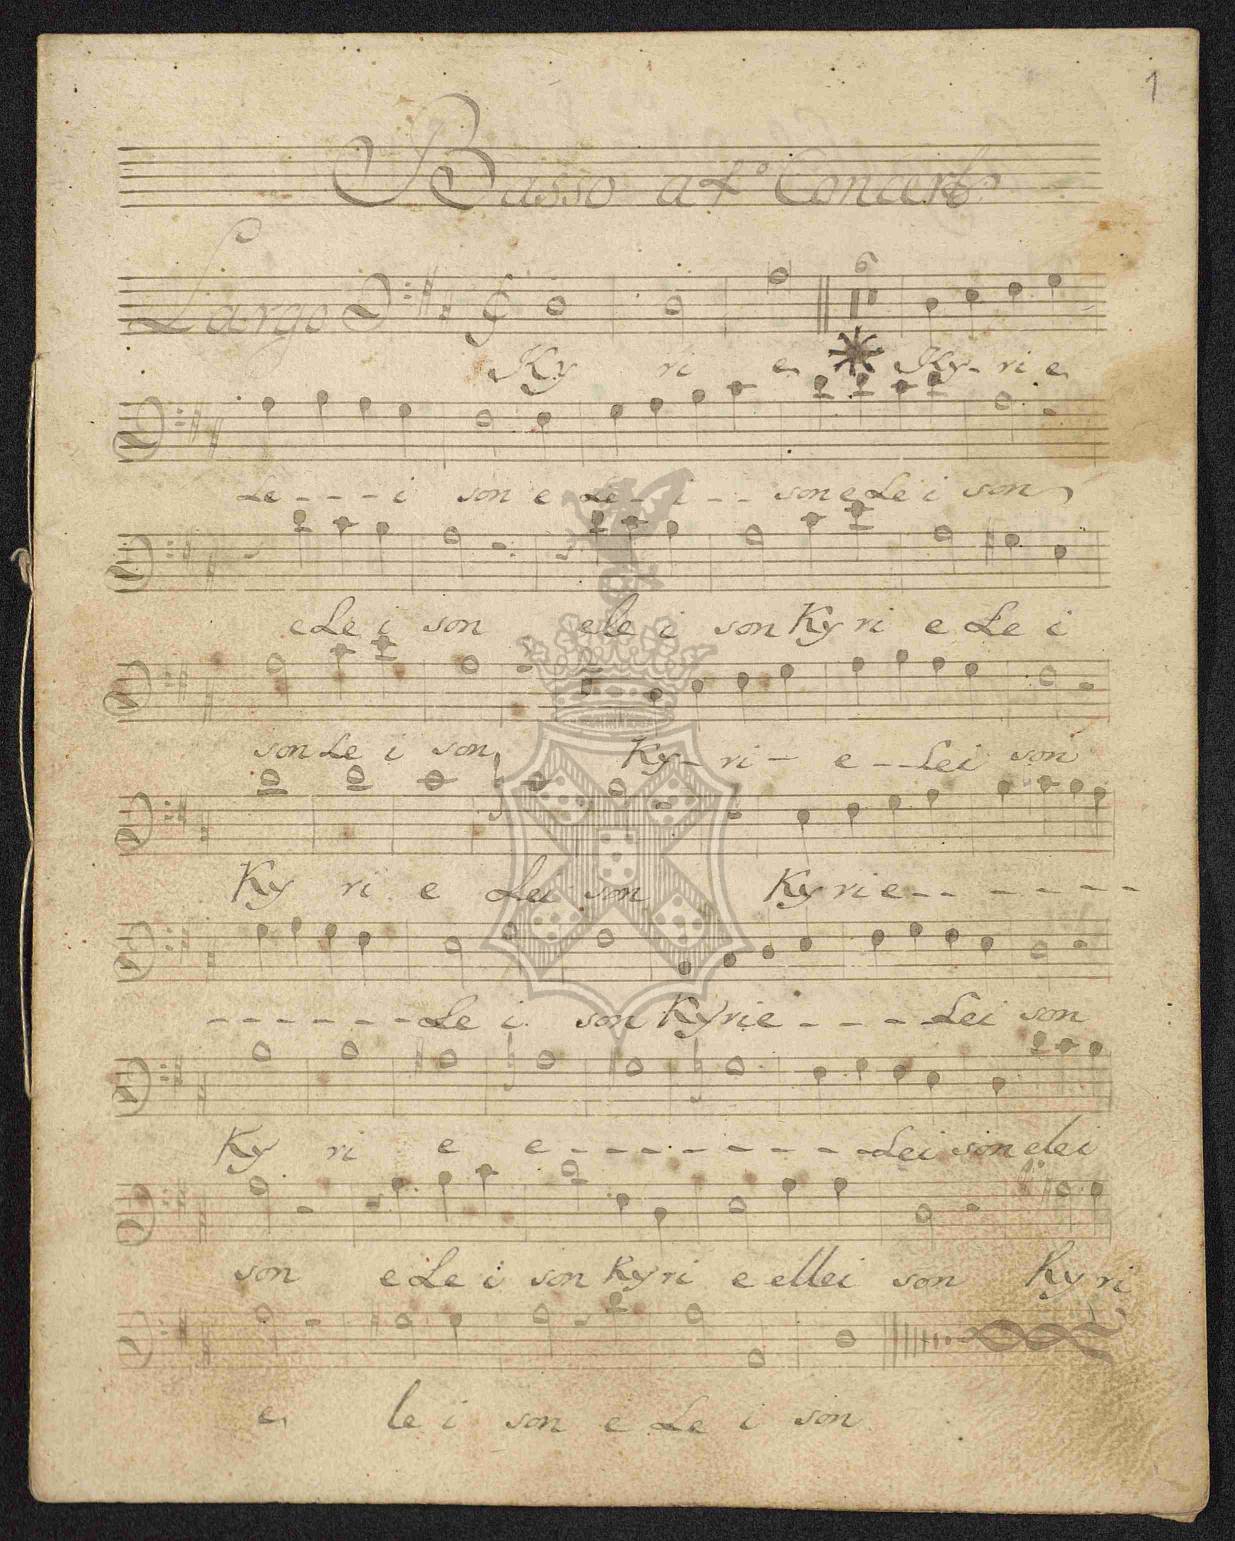 1
Basso a 4º Concerto
Largo
6
Ky ri e Ky- ri e
Le - - - i son e Le - i - - son e Le i son
e Le i son ele i son Ky ri e Le i
son Le i son Ky - ri - e - - Lei son
Ky ri e Lei son Ky ri e - - - - - - -
- - - - - - Le i son Kyrie - - - - Lei son
Ky ri e e - - - - - - - - - Lei son elei
son e Le i son Ky ri e ellei son Ky ri
e le i son e Le i son